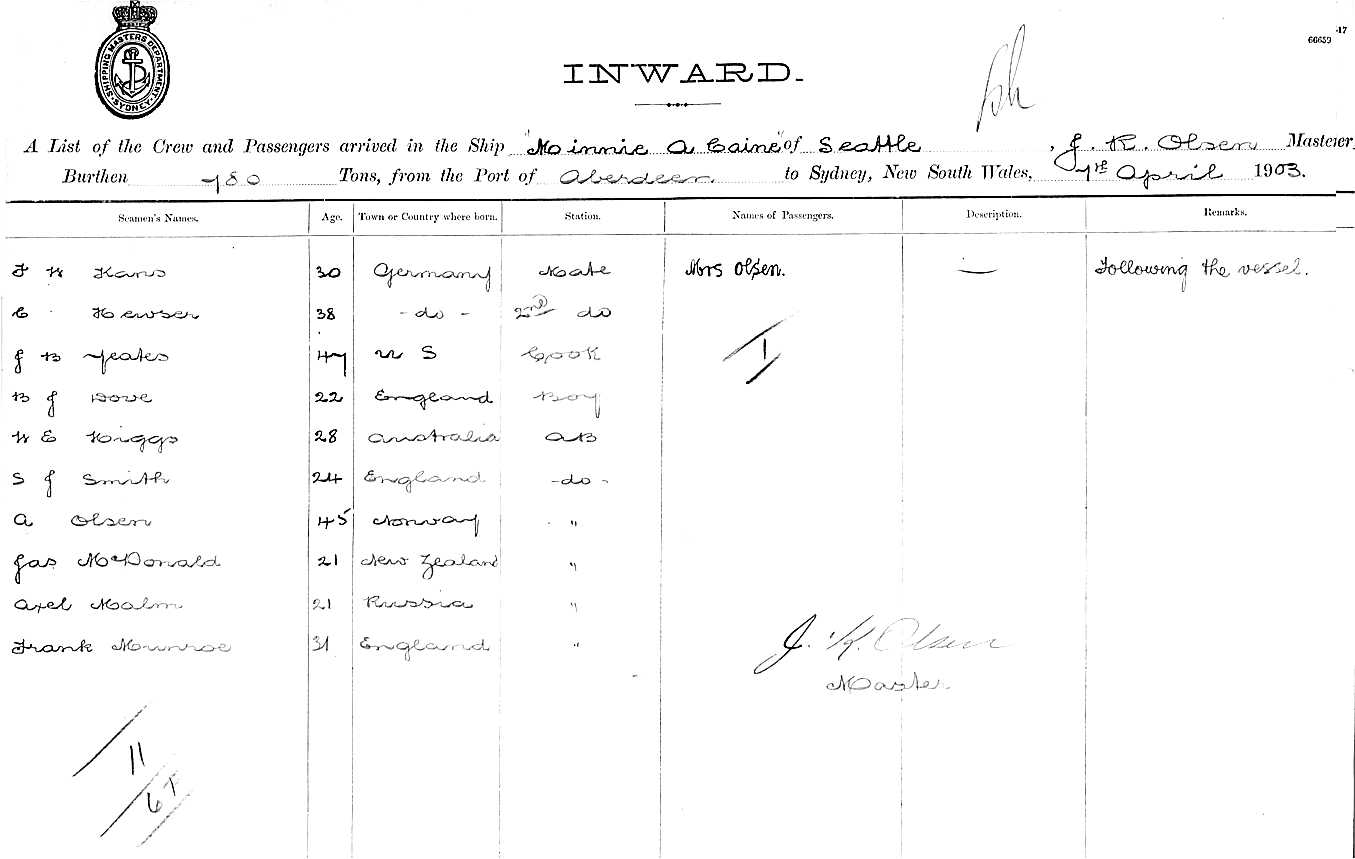 SHIPPING MASTERS DEPARTMENT
SYDNEY
17
66659
INWARD.
A List of the Crew and Passengers arrived in the Ship "Minnie A Caine" of Seattle, J. K. Olsen Master
Burthen 780 Tons, from the Port of Aberdeen to Sydney, New South Wales, April 1903.
Seamen's Names. Age. Town or Country where born. Station. Names of Passengers. Description. Remarks.
30 Germany Mate Mrs Olsen. — Following the vessel.
C 38 - do - 2nd do
J B Yeates 47 U S Cook 1
B J Dove 22 England Boy
W E Higgs 28 Australia AB
S J Smith 24 England - do -
A Olsen 45 Norway "
Jas McDonald 21 New Zealand "
Axel Malm 21 Russia "
Frank Munroe 31 England "
J. K. Olsen
Master.
11
67